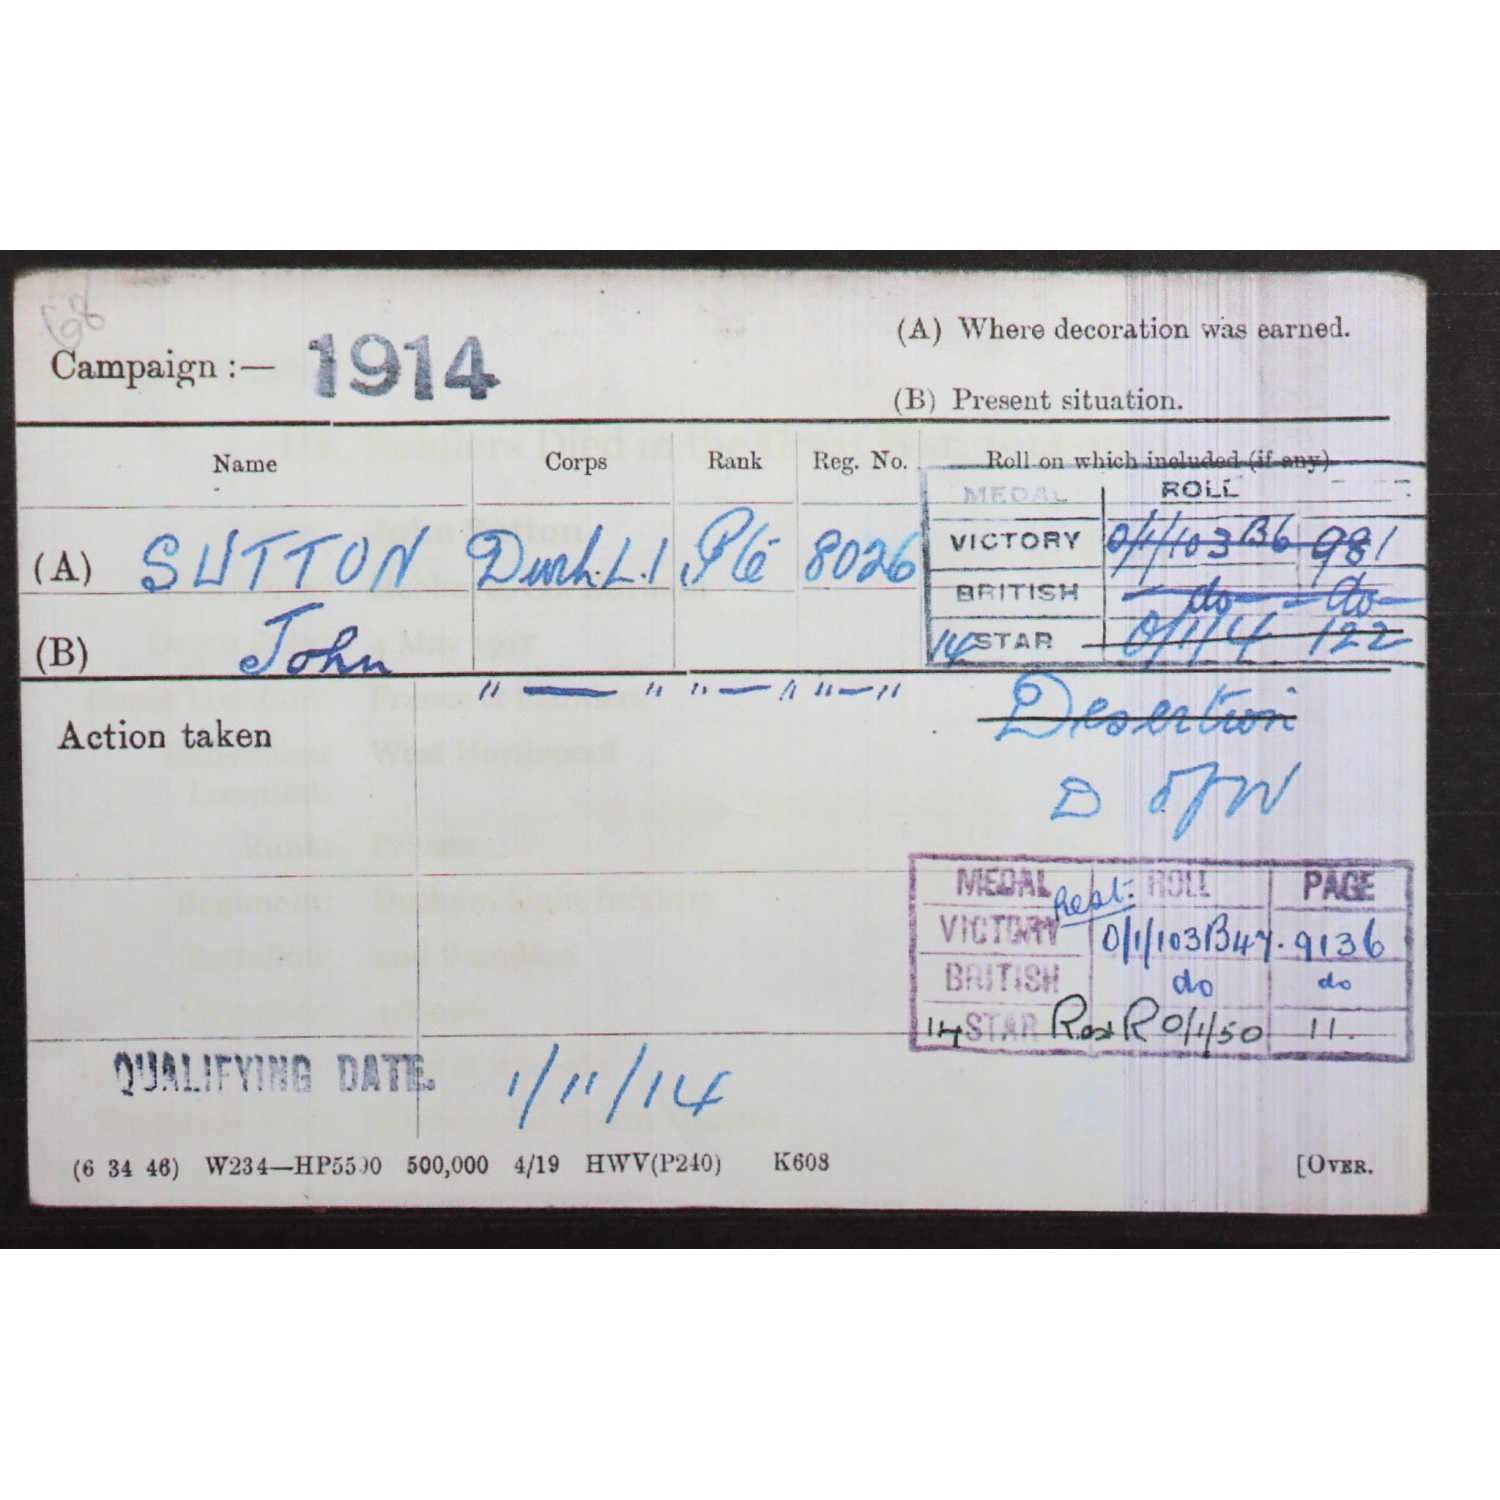 68
Campaign :— 1914
(A) Where decoration was earned.
(B) Present situation.
Name Corps Rank Reg. No. Roll on which included (if any)
MEDAL ROLL
(A) SUTTON Durh.L.I Pte 8026 VICTORY O/1/103 B6 981
BRITISH do do
(B) John 14 STAR O/1/4 122
" — " " — " " — "
Action taken
Desertion
D of W
MEDAL Rest: ROLL PAGE
VICTORY O/1/103B47. 9136
BRITISH do do
14 STAR Res R O/1/50 11.
QUALIFYING DATE. 1/11/14
(6 34 46) W234—HP5590 500,000 4/19 HWV(P240) K608 [OVER.